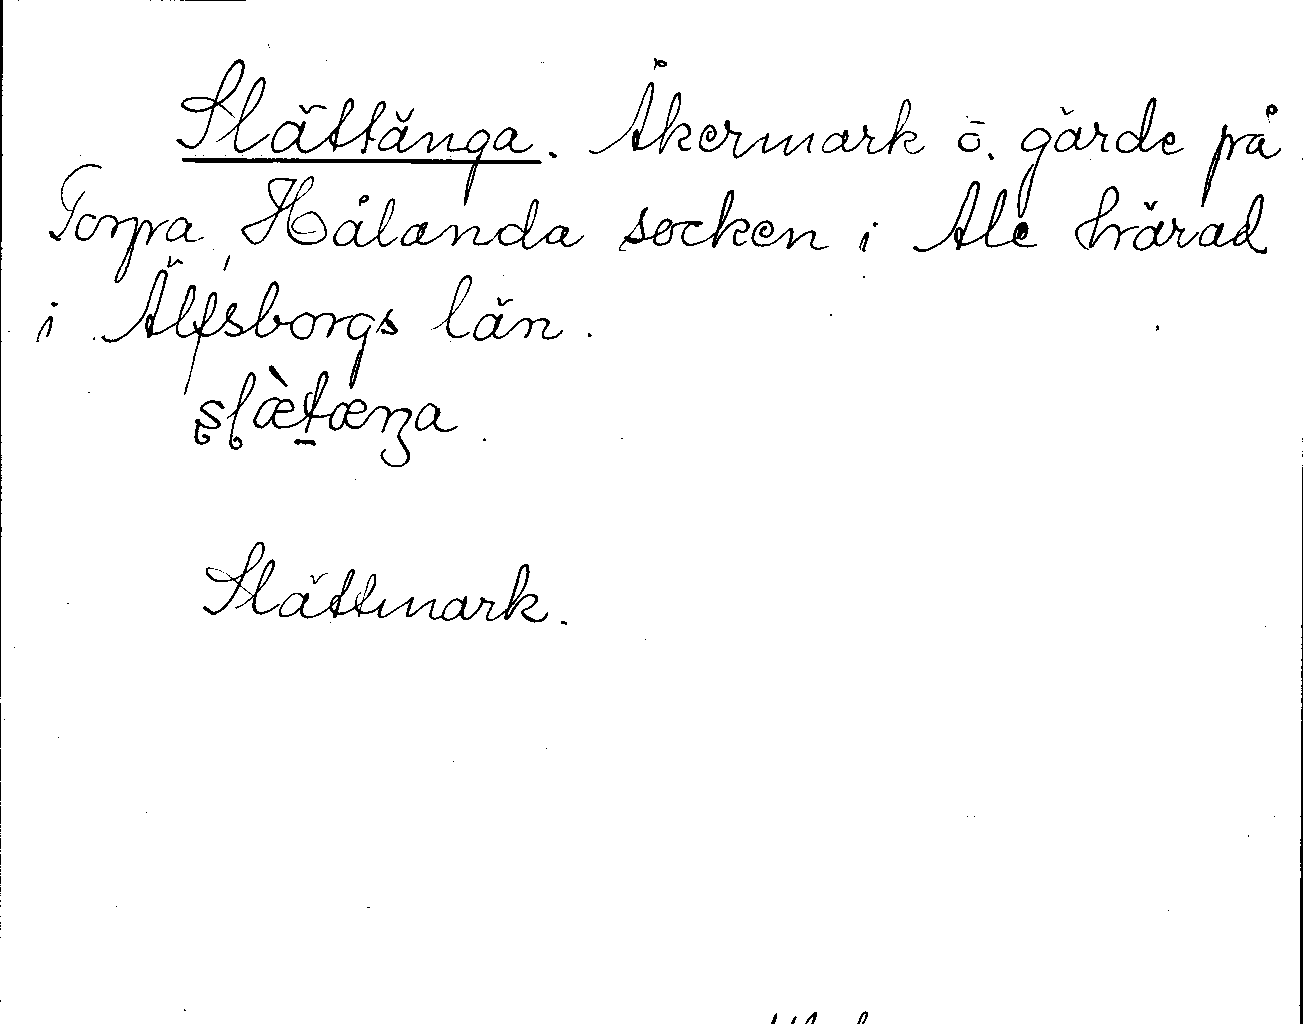 Slättänga. Åkermark ö. gärde på
Torpa, Hålanda socken i Ale härad
i Älfsborgs län.
ʂɭæ̀t̠æŋa
Slättmark.